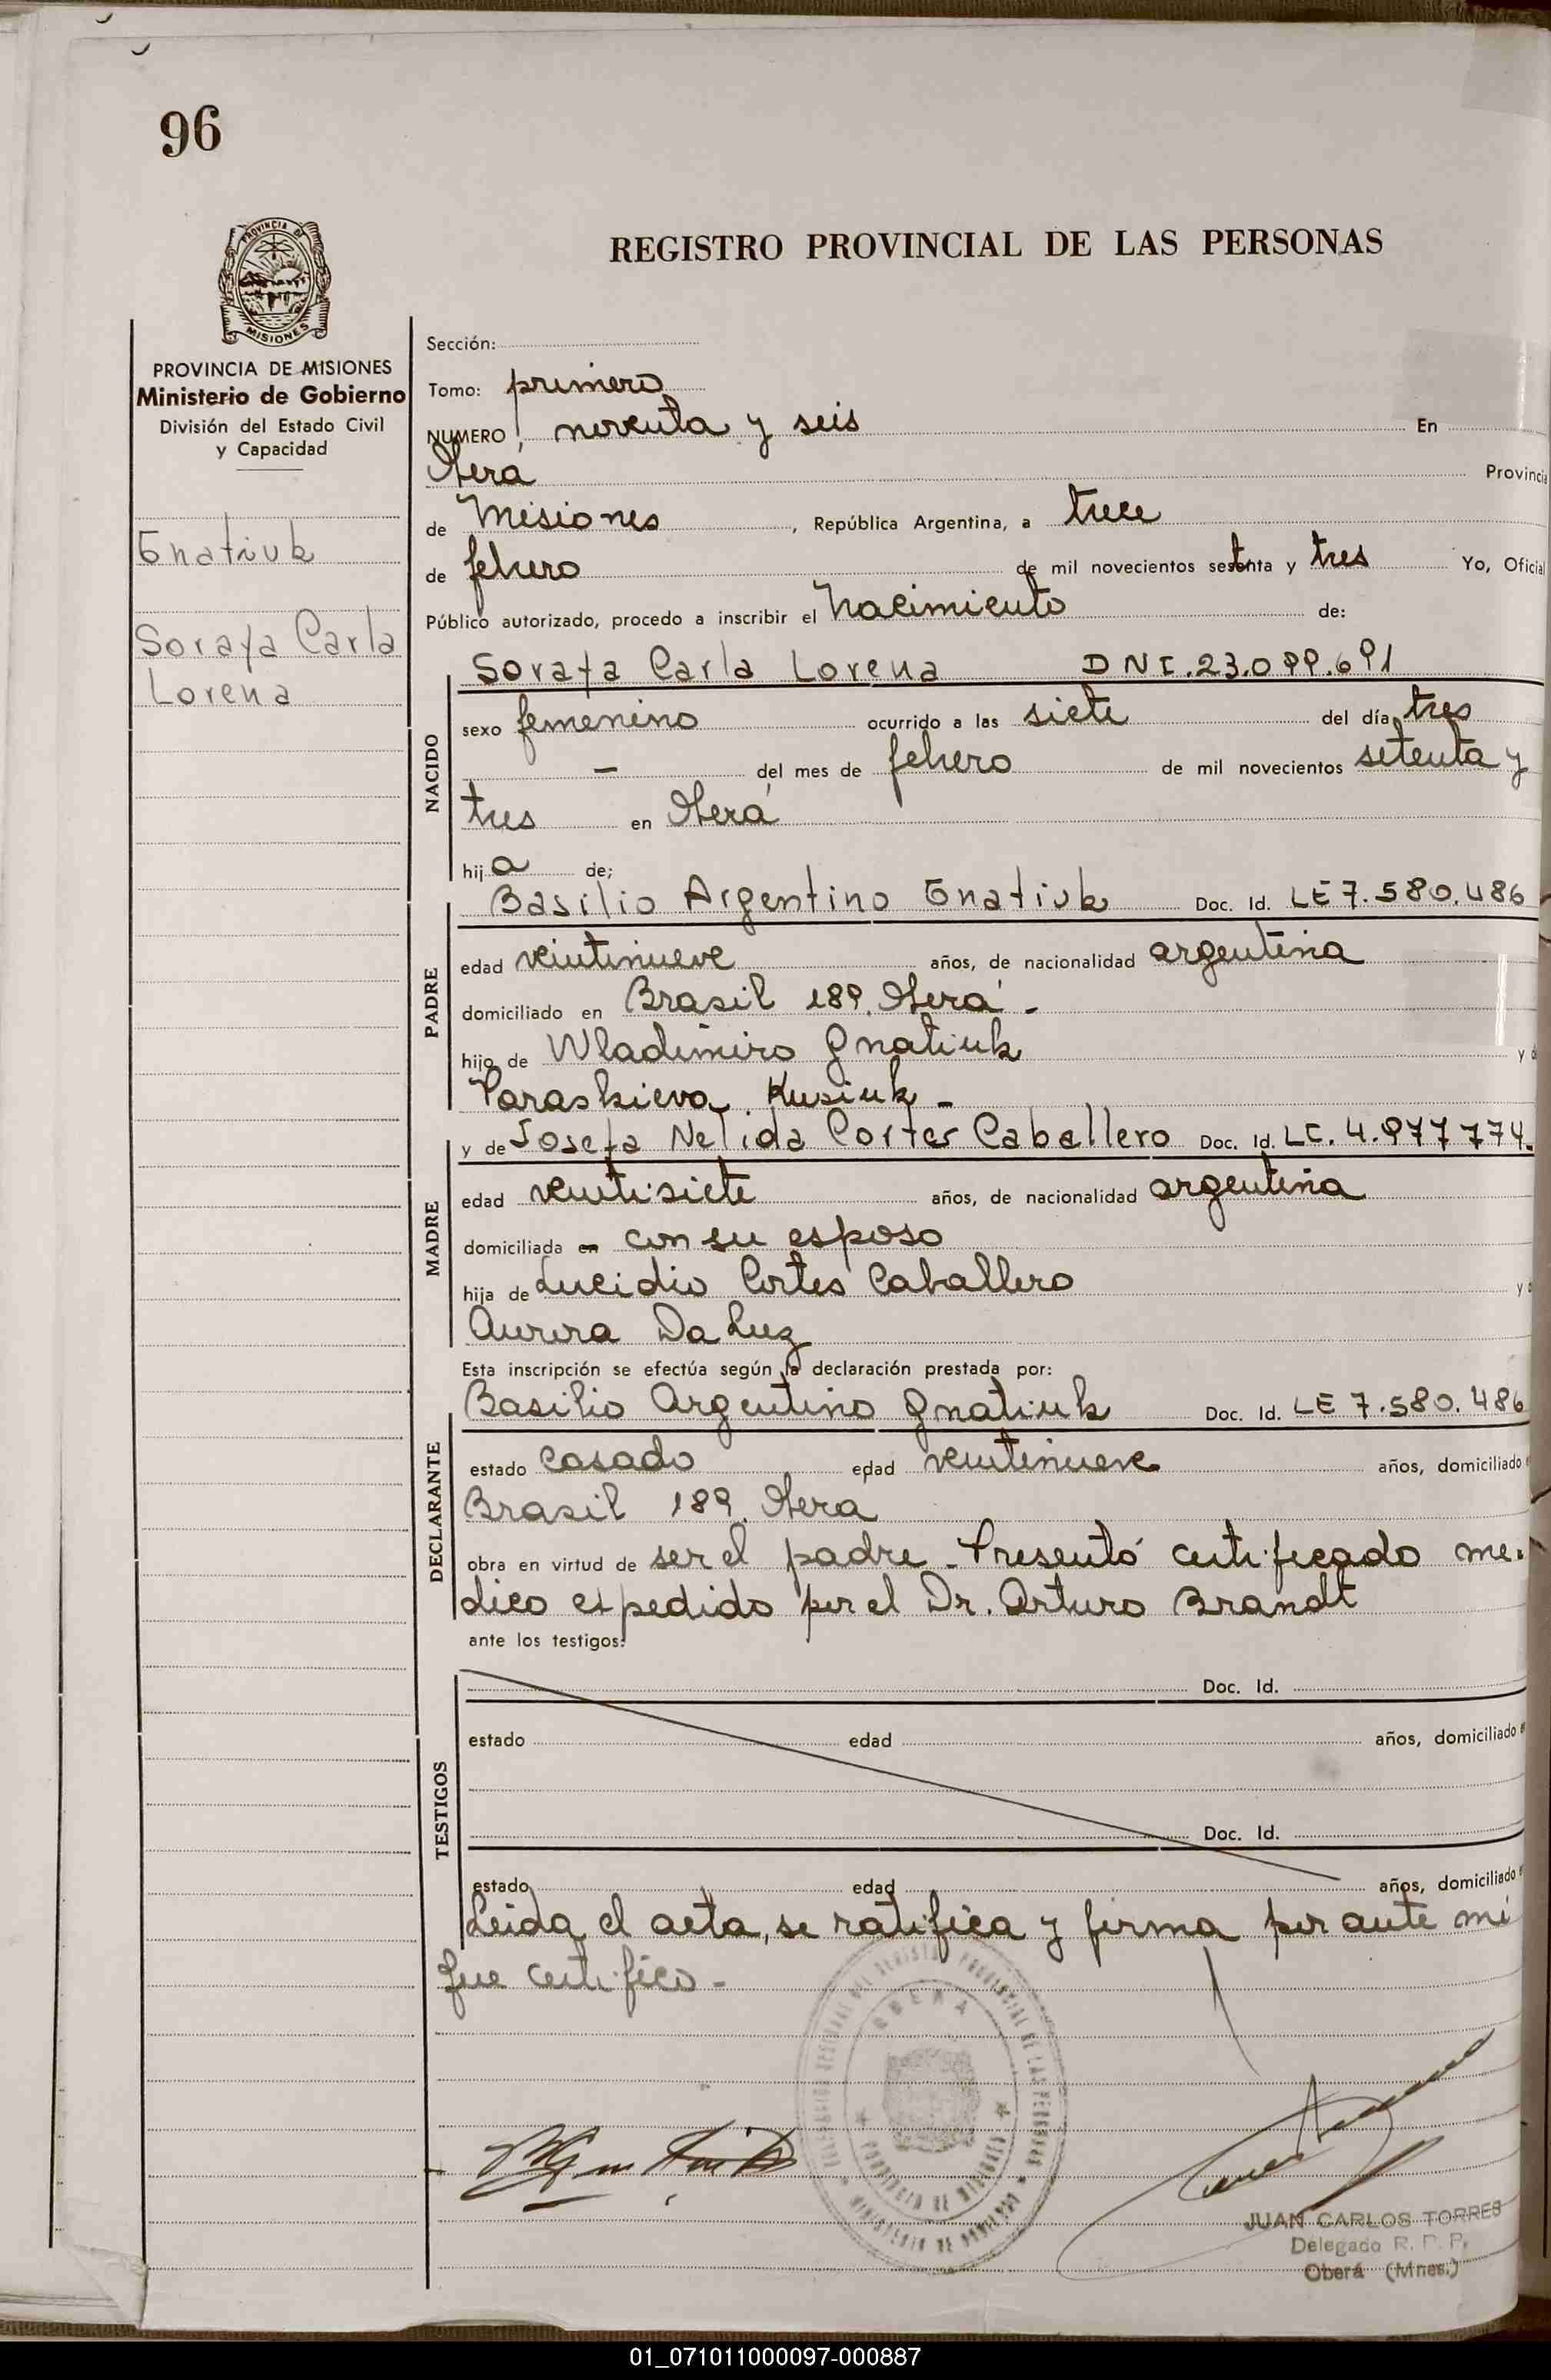 96
PROVINCIA DE
MISIONES
REGISTRO PROVINCIAL DE LAS PERSONAS
PROVINCIA DE MISIONES
Ministerio de Gobierno
División del Estado Civil
y Capacidad
Gnatiuk
Soraya Carla
Lorena
Sección:
Tomo: primero
NUMERO noventa y seis En
Oberá Provincia
de Misiones, República Argentina, a trece
de febrero de mil novecientos setenta y tres Yo, Oficial
Público autorizado, procedo a inscribir el Nacimiento de:
Soraya Carla Lorena DNI.23.099.691
NACIDO
sexo femenino ocurrido a las siete del día tres
— del mes de febrero de mil novecientos setenta y
tres en Oberá
hija de;
Basilio Argentino Gnatiuk Doc. Id. LE 7.580.486
PADRE
edad veintinueve años, de nacionalidad argentina
domiciliado en Brasil 189. Oberá -
hijo de Wladimiro Gnatiuk y
Paraskieva Kusiuk -
y de Josefa Nelida Cortes Caballero Doc. Id. LC. 4.977.774.
MADRE
edad veintisiete años, de nacionalidad argentina
domiciliada en con su esposo
hija de Lucidio Cortes Caballero y
Aurora Da Luz
Esta inscripción se efectúa según la declaración prestada por:
Basilio Argentino Gnatiuk Doc. Id. LE 7.580.486
DECLARANTE
estado casado edad veintinueve años, domiciliado
Brasil 189. Obera
obra en virtud de ser el padre - Presentó certificado me-
dico expedido por el Dr. Arturo Brandt
ante los testigos:
TESTIGOS
Doc. Id.
estado edad años, domiciliado
Doc. Id.
estado edad años, domiciliado
Leida el acta, se ratifica y firma por ante mi
que certifico -
OBERA
PROVINCIA DE MISIONES
MINISTERIO DE GOBIERNO
JUAN CARLOS TORRES
Delegado R. P. P.
Oberá (Mnes.)
01_071011000097-000887